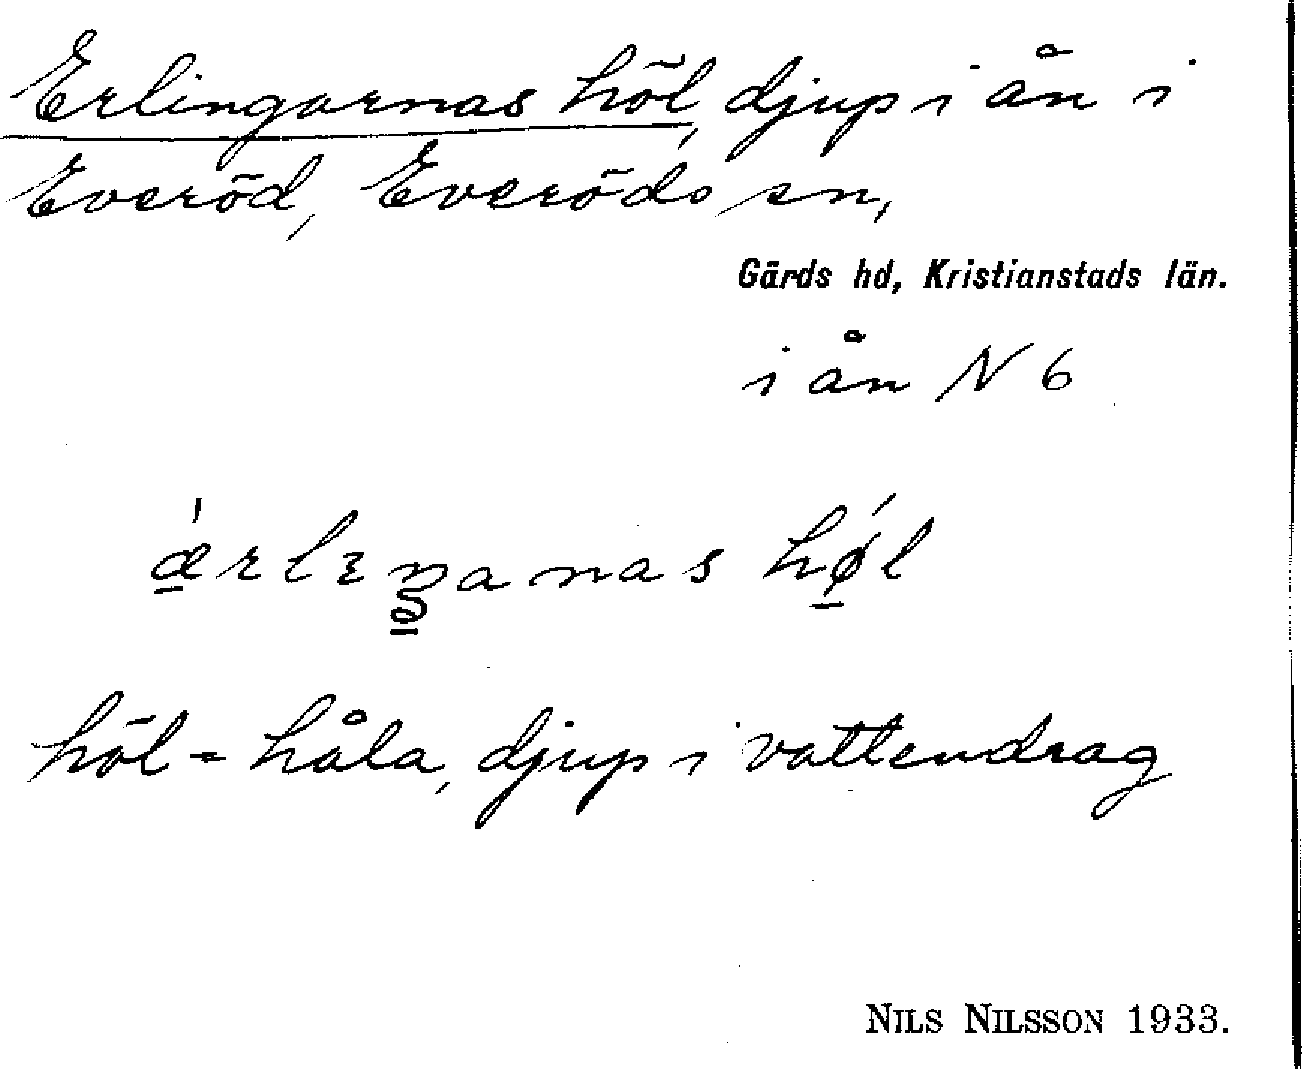 Erlingarnas höl, djup i ån i
Everöd, Everöds sn,
Gärds hd, Kristianstads län.
i ån N 6
ǽrlɛŋanas hǿl
höl = håla, djup i vattendrag
NILS NILSSON 1933.